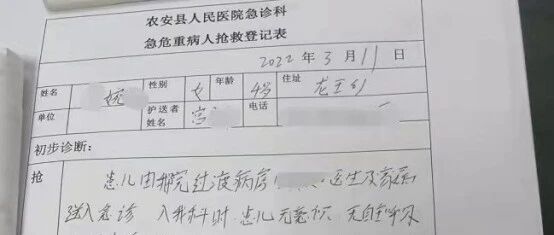 农安县人民医院急诊科
急危重病人抢救登记表
2022年3月11日
姓名 婉 性别 女 年龄 4岁 住址
单位 护送者姓名 宫 电话
初步诊断:
抢 患儿由我院过渡病房 医生及家属
送入急诊 入我科时 患儿无意识 无自主呼吸